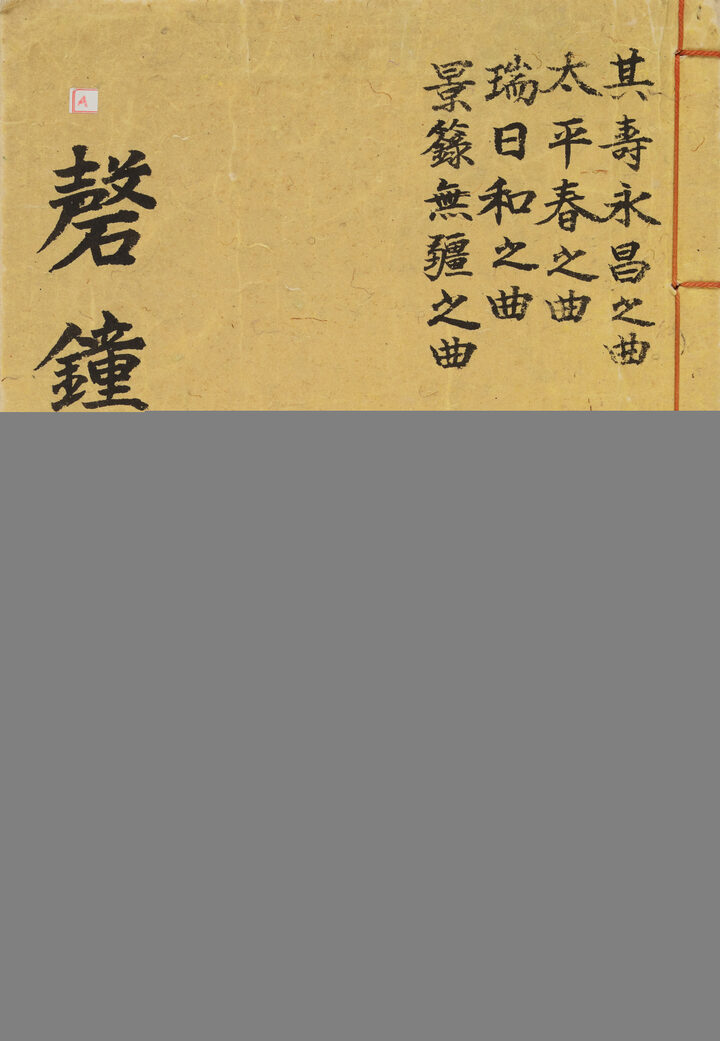 其壽永昌之曲
太平春之曲
瑞日和之曲
景籙無疆之曲
磬鐘
A